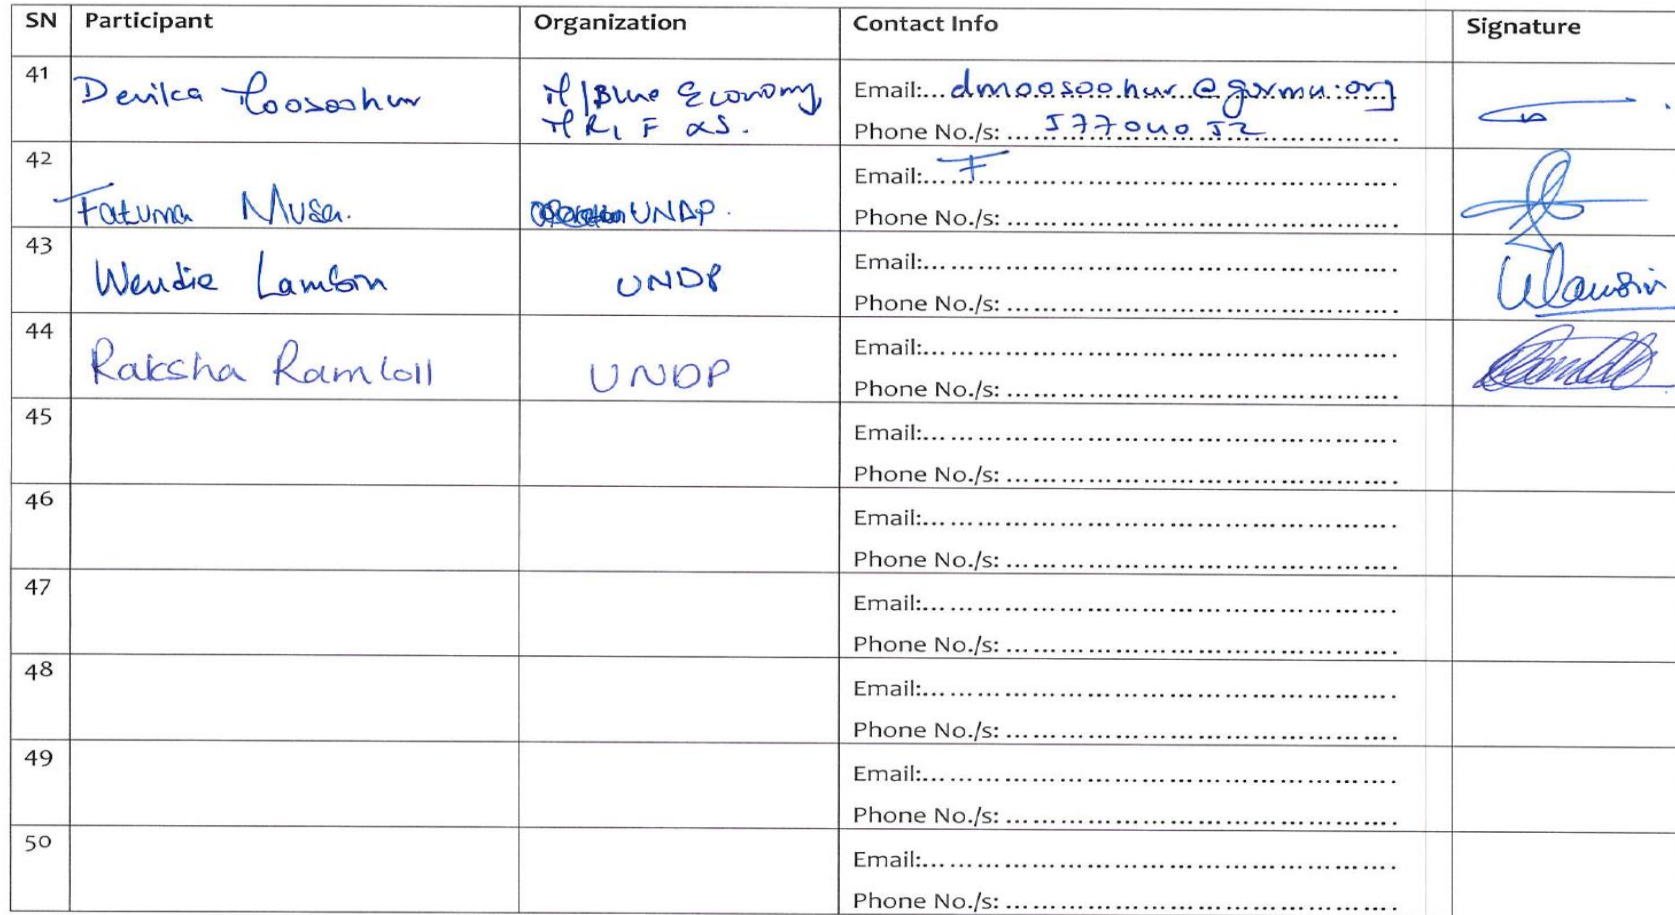 SN Participant Organization Contact Info Signature
41 Devika Moosoohur M/Blue Economy, Email:... dmoosoohur@govmu.org
MR, F &S. Phone No./s: ... 57704052
42 Email:... F
Fatuma Musa. UNDP. Phone No./s: ...
43 Wendie Lamson UNDP Email:...
Phone No./s: ...
44 Raksha Ramloll UNDP Email:...
Phone No./s: ...
45 Email:...
Phone No./s: ...
46 Email:...
Phone No./s: ...
47 Email:...
Phone No./s: ...
48 Email:...
Phone No./s: ...
49 Email:...
Phone No./s: ...
50 Email:...
Phone No./s: ...